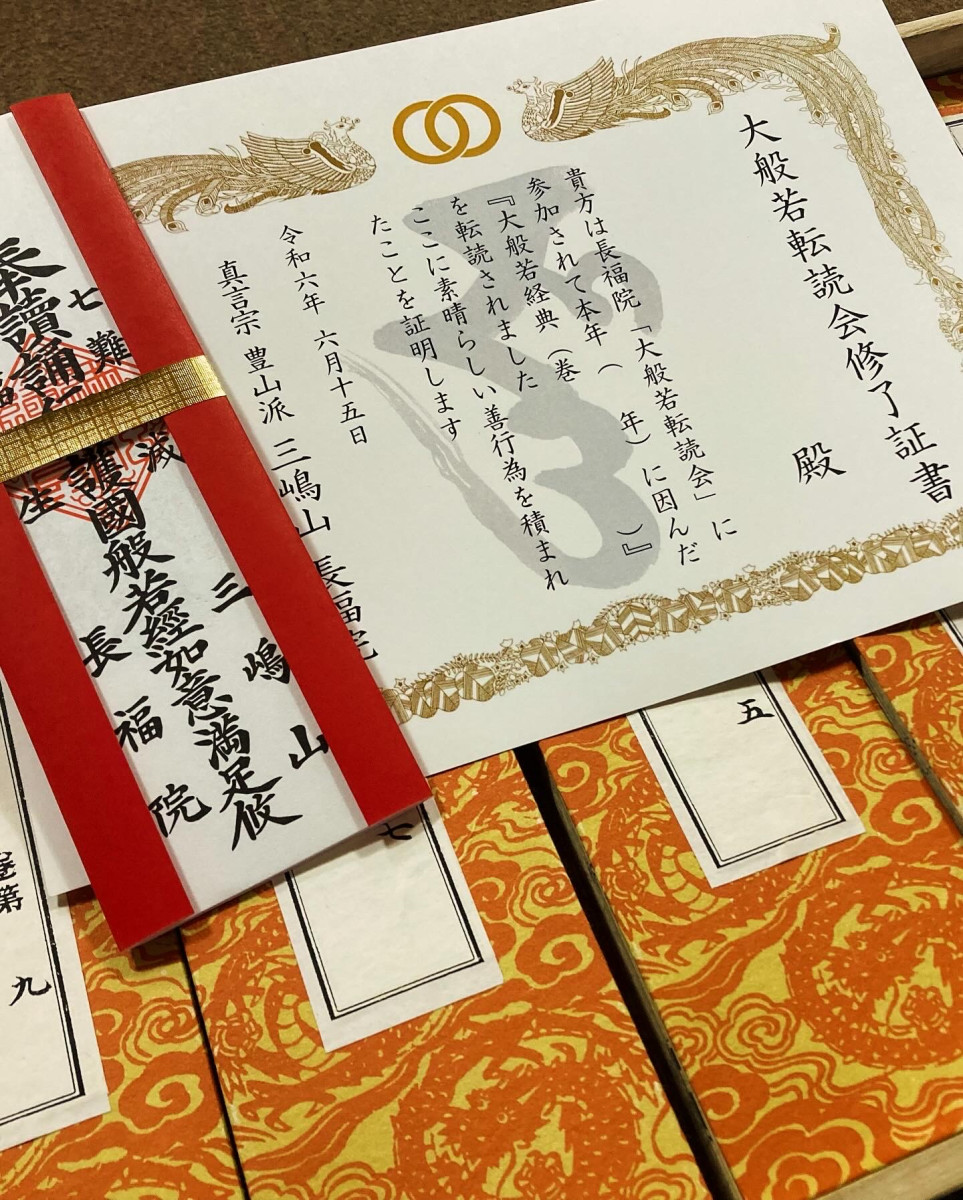 大般若転読会修了証書
殿
貴方は長福院「大般若転読会」に
参加されて本年（　　年）に因んだ
『大般若経典（巻　　　　）』
を転読されました
ここに素晴らしい善行為を積まれ
たことを証明します
令和六年 六月十五日
真言宗 豊山派 三嶋山 長福院
七難
滅
奉讀誦
護國般若經如意滿足攸
生
三嶋山
長福院
五
七
巻第 九